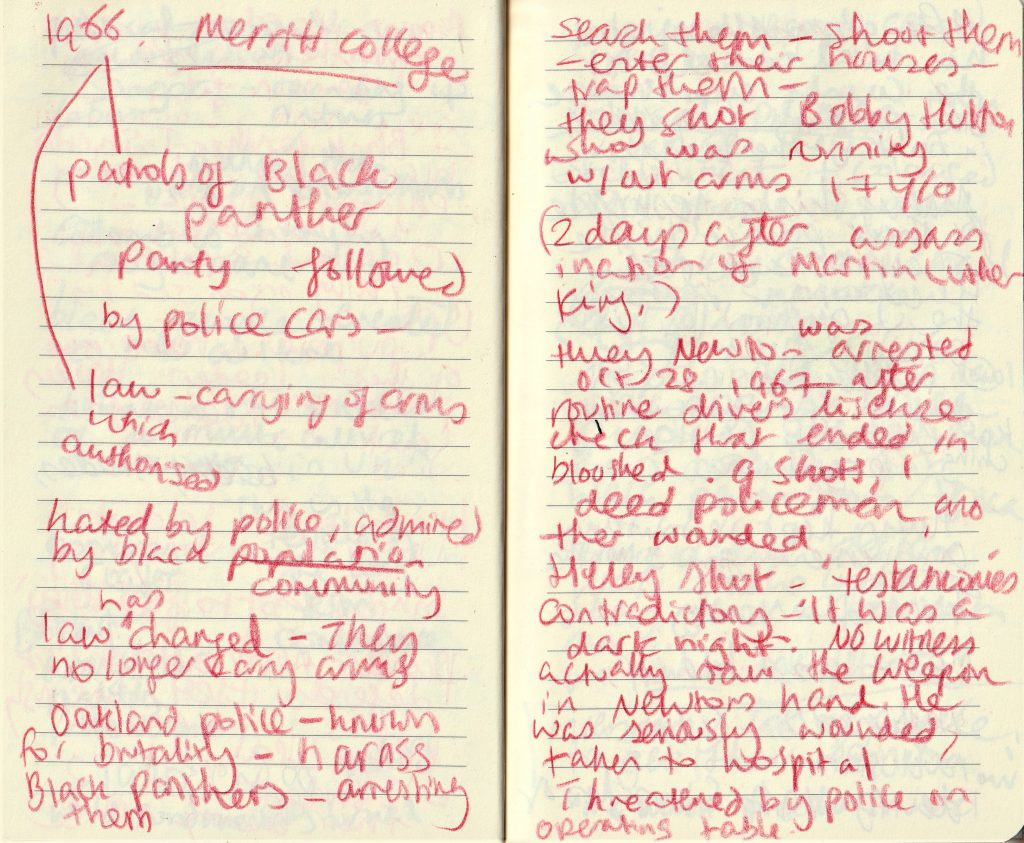 1966. Merritt College
patrols of Black
panther
Party followed
by police cars —
law - carrying of arms
which
authorised
hated by police, admired
by black population
community
has
law changed - They
no longer carry arms
Oakland police - known
for brutality - harass
Black Panthers - arresting
them
seach them - shoot them
- enter their houses -
trap them -
they shot Bobby Hutton
who was running
w/out arms 17 y/o
(2 days after assass
ination of Martin Luther
King.)
was
Huey Newton arrested
Oct 28 1967 after
routine drivers liscense
check that ended in
bloodshed. 9 shots, 1
deed policeman, ano
ther wounded
Huey shot - 'testamonies'
contradictory - 'It was a
dark night'. No witness
actually saw the weapon
in Newtons hand. He
was seriously wounded,
taken to hospital
Threatened by police on
operating table.